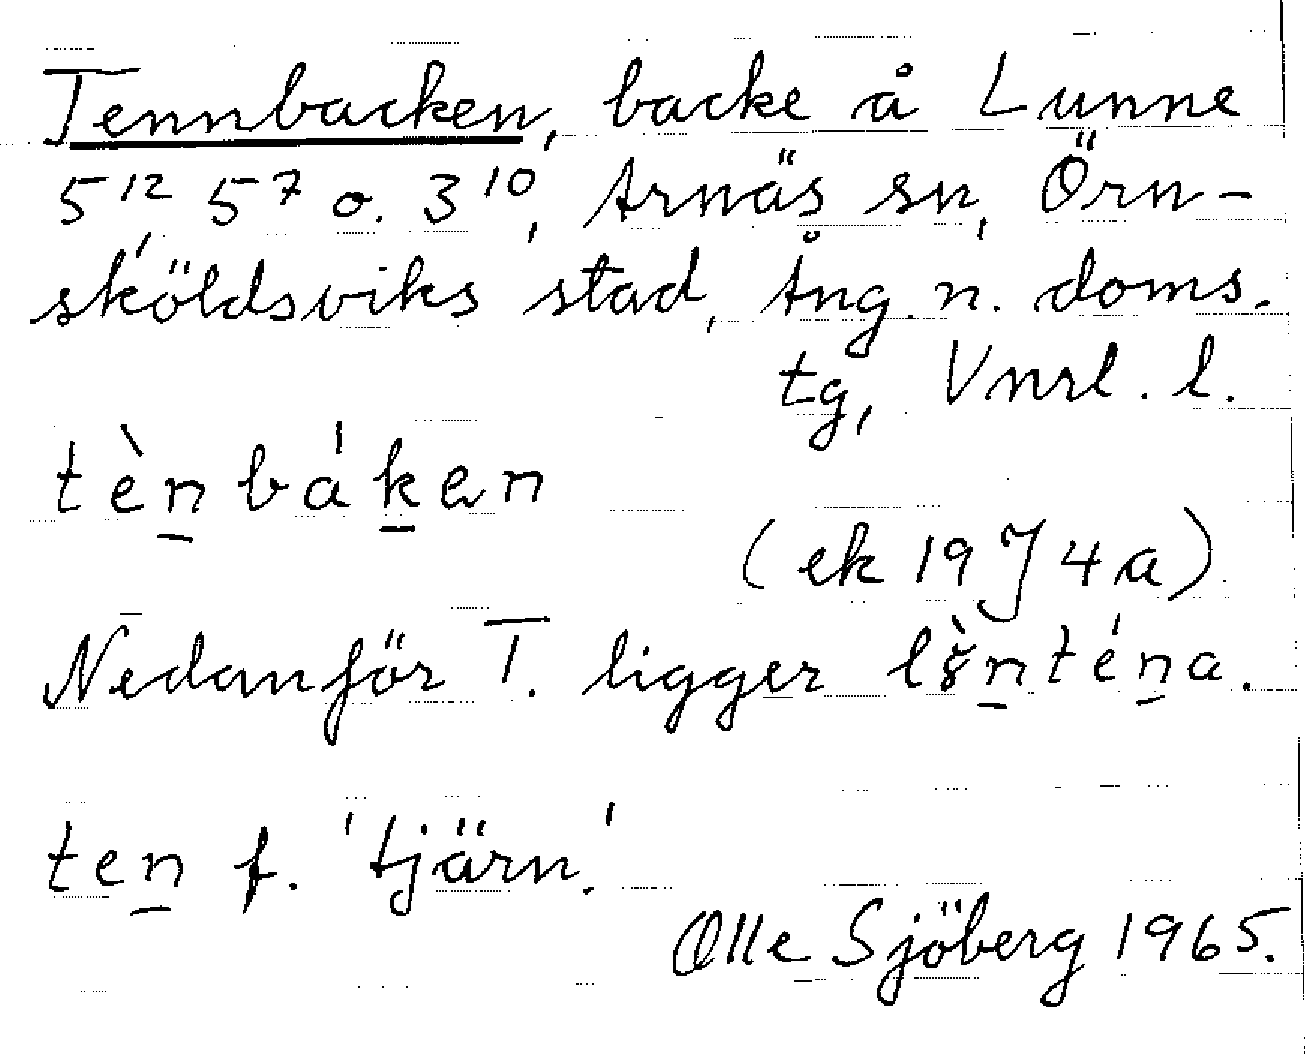 Tennbacken, backe å Lunne
5¹² 5⁷ o. 3¹⁰, Arnäs sn, Örn-
sköldsviks stad, Ång. n. doms.
tg, Vnrl. l.
tènbáken
(ek 19 J 4 a)
Nedanför T. ligger
ten f. 'tjärn.'
Olle Sjöberg 1965.